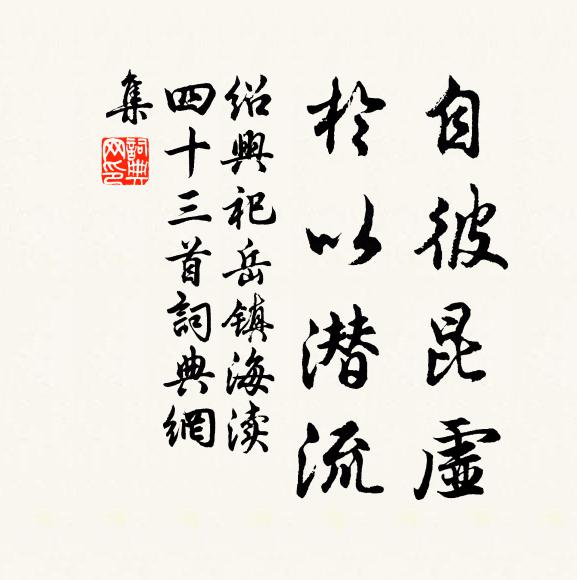 自彼昆虛
於以潛流
紹興祀岳鎮海瀆
四十三首詞典網
集
詞典
网印